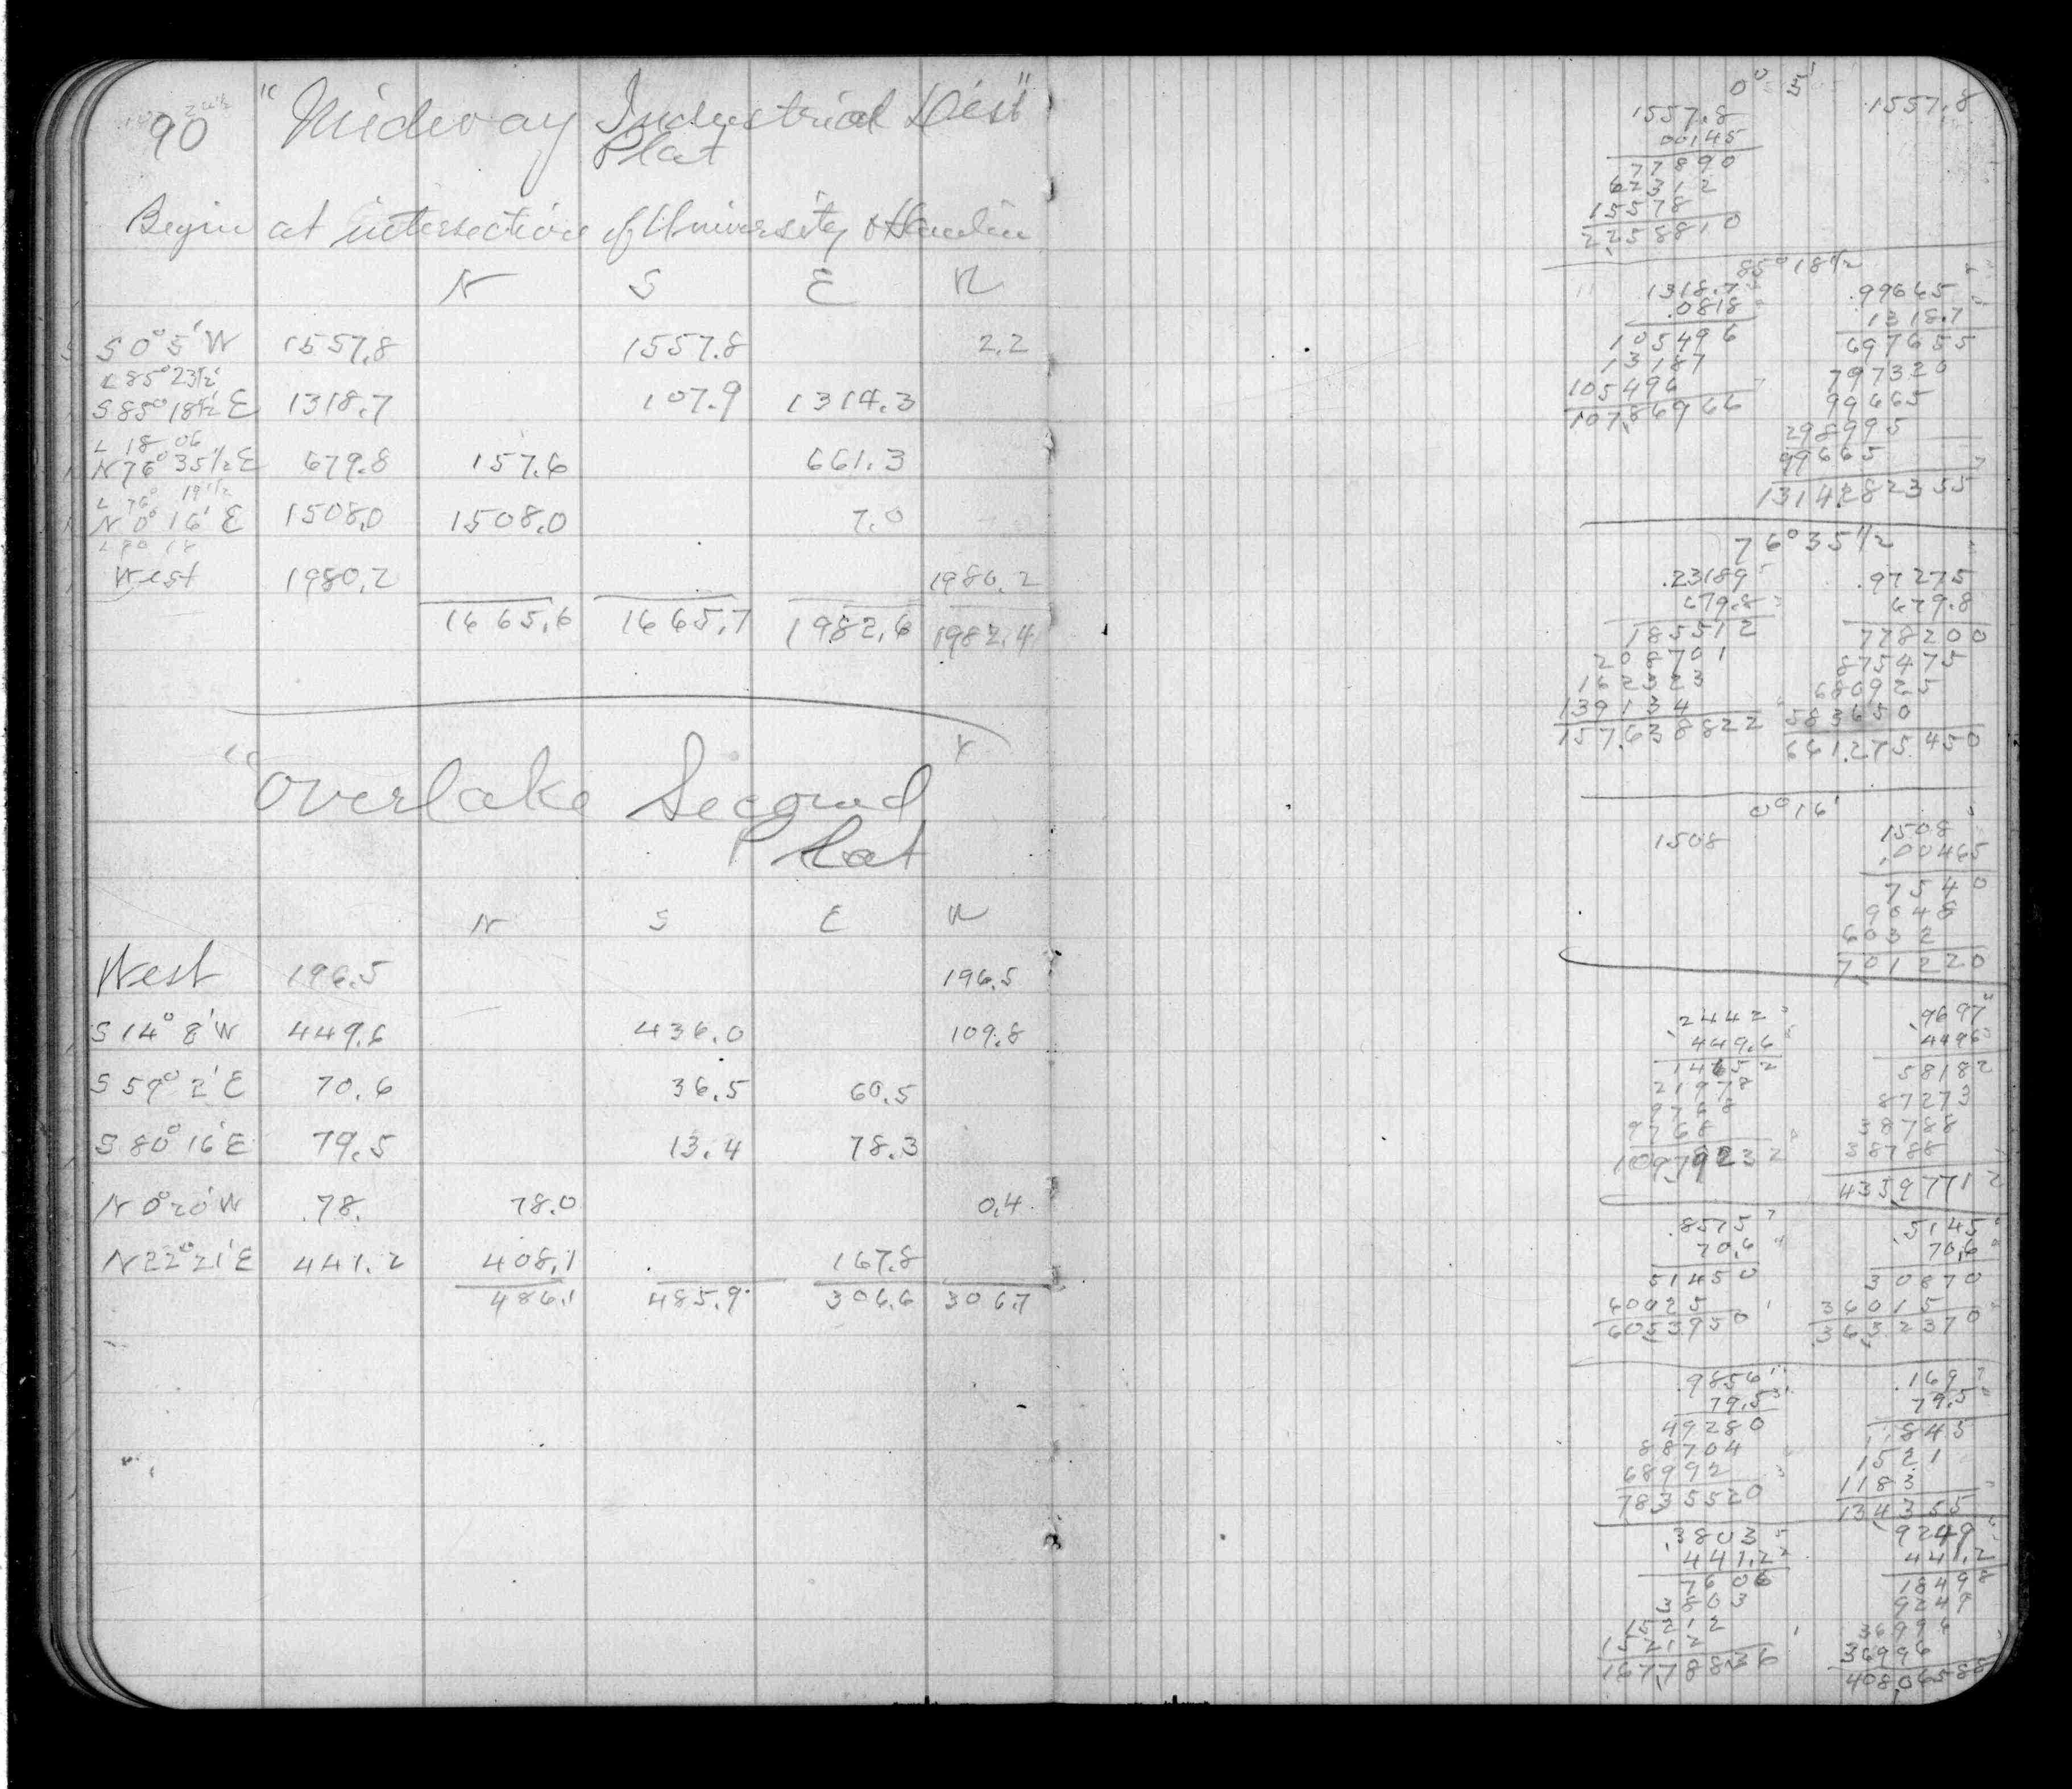 90 "Midway Industrial Dist"
Plat
Begin at intersection of University & Hamline
N S E W
S 0° 5' W 1557.8 1557.8 2.2
L 85° 23½'
S 85° 18½' E 1318.7 107.9 1314.3
L 18 06
N 76° 35½ E 679.8 157.6 661.3
L 76° 19½
N 0° 16' E 1508.0 1508.0 7.0
L 90 18
West 1980.2 1980.2
1665.6 1665.7 1982.6 1982.4
"Overlake Second"
Plat
N S E W
West 196.5 196.5
S 14° 8' W 449.6 436.0 109.8
S 59° 2' E 70.6 36.5 60.5
S 80° 16' E 79.5 13.4 78.3
N 0° 20' W 78. 78.0 0.4
N 22° 21' E 441.2 408.1 167.8
486.1 485.9 306.6 306.7
0° 5'
1557.8 1557.8
00145
77890
62312
15578
2258810
85° 18½
1318.7 .99665
.0818 1318.7
105496 697655
13187 797320
105496 99665
107.86966 298995
99665
1314.282355
76° 35½
.23189 .97275
679.8 679.8
185512 778200
208701 875475
162323 680925
139134 583650
157.638822 661.275450
0° 16'
1508 1508
.00465
7540
9048
6032
7.01220
.2442 .9697
449.6 4496
14652 58182
21978 87273
9768 38788
9768 38788
10979232 43597712
.8575 .5145
70.6 70.6
51450 30870
60025 36015
6053950 3632370
.9856 .169
79.5 79.5
49280 845
88704 1521
68992 1183
7835520 134355
.3803 .9249
441.2 441.2
7606 18498
3803 9249
15212 36996
15212 36996
16778836 40806588